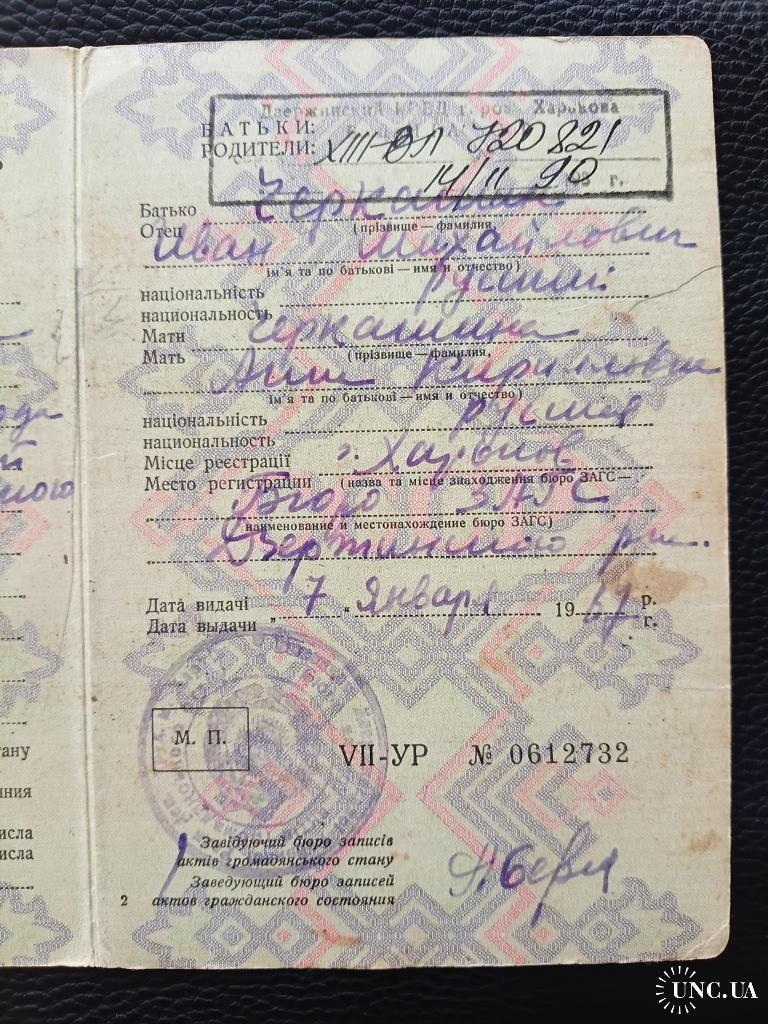 Дзержинский
Харькова
БАТЬКИ:
РОДИТЕЛИ:
XIII-ВЛ 720821
14/II 90 г.
Батько Черкашин
Отец (прізвище — фамилия,
Иван Михайлович
ім'я та по батькові — имя и отчество)
національність русский
национальность
Мати Черкашина
Мать (прізвище — фамилия,
Анна Кирилловна
ім'я та по батькові — имя и отчество)
національність русская
национальность
Місце реєстрації г. Харьков
Место регистрации (назва та місце знаходження бюро ЗАГС —
Бюро ЗАГС
наименование и местонахождение бюро ЗАГС)
Дзержинского
Дата видачі 7 " Января 19 р.
Дата выдачи „ г.
М. П.
VII-УР № 0612732
Завідуючий бюро записів
актів громадянського стану
Заведующий бюро записей
2 актов гражданского состояния
UNC.UA